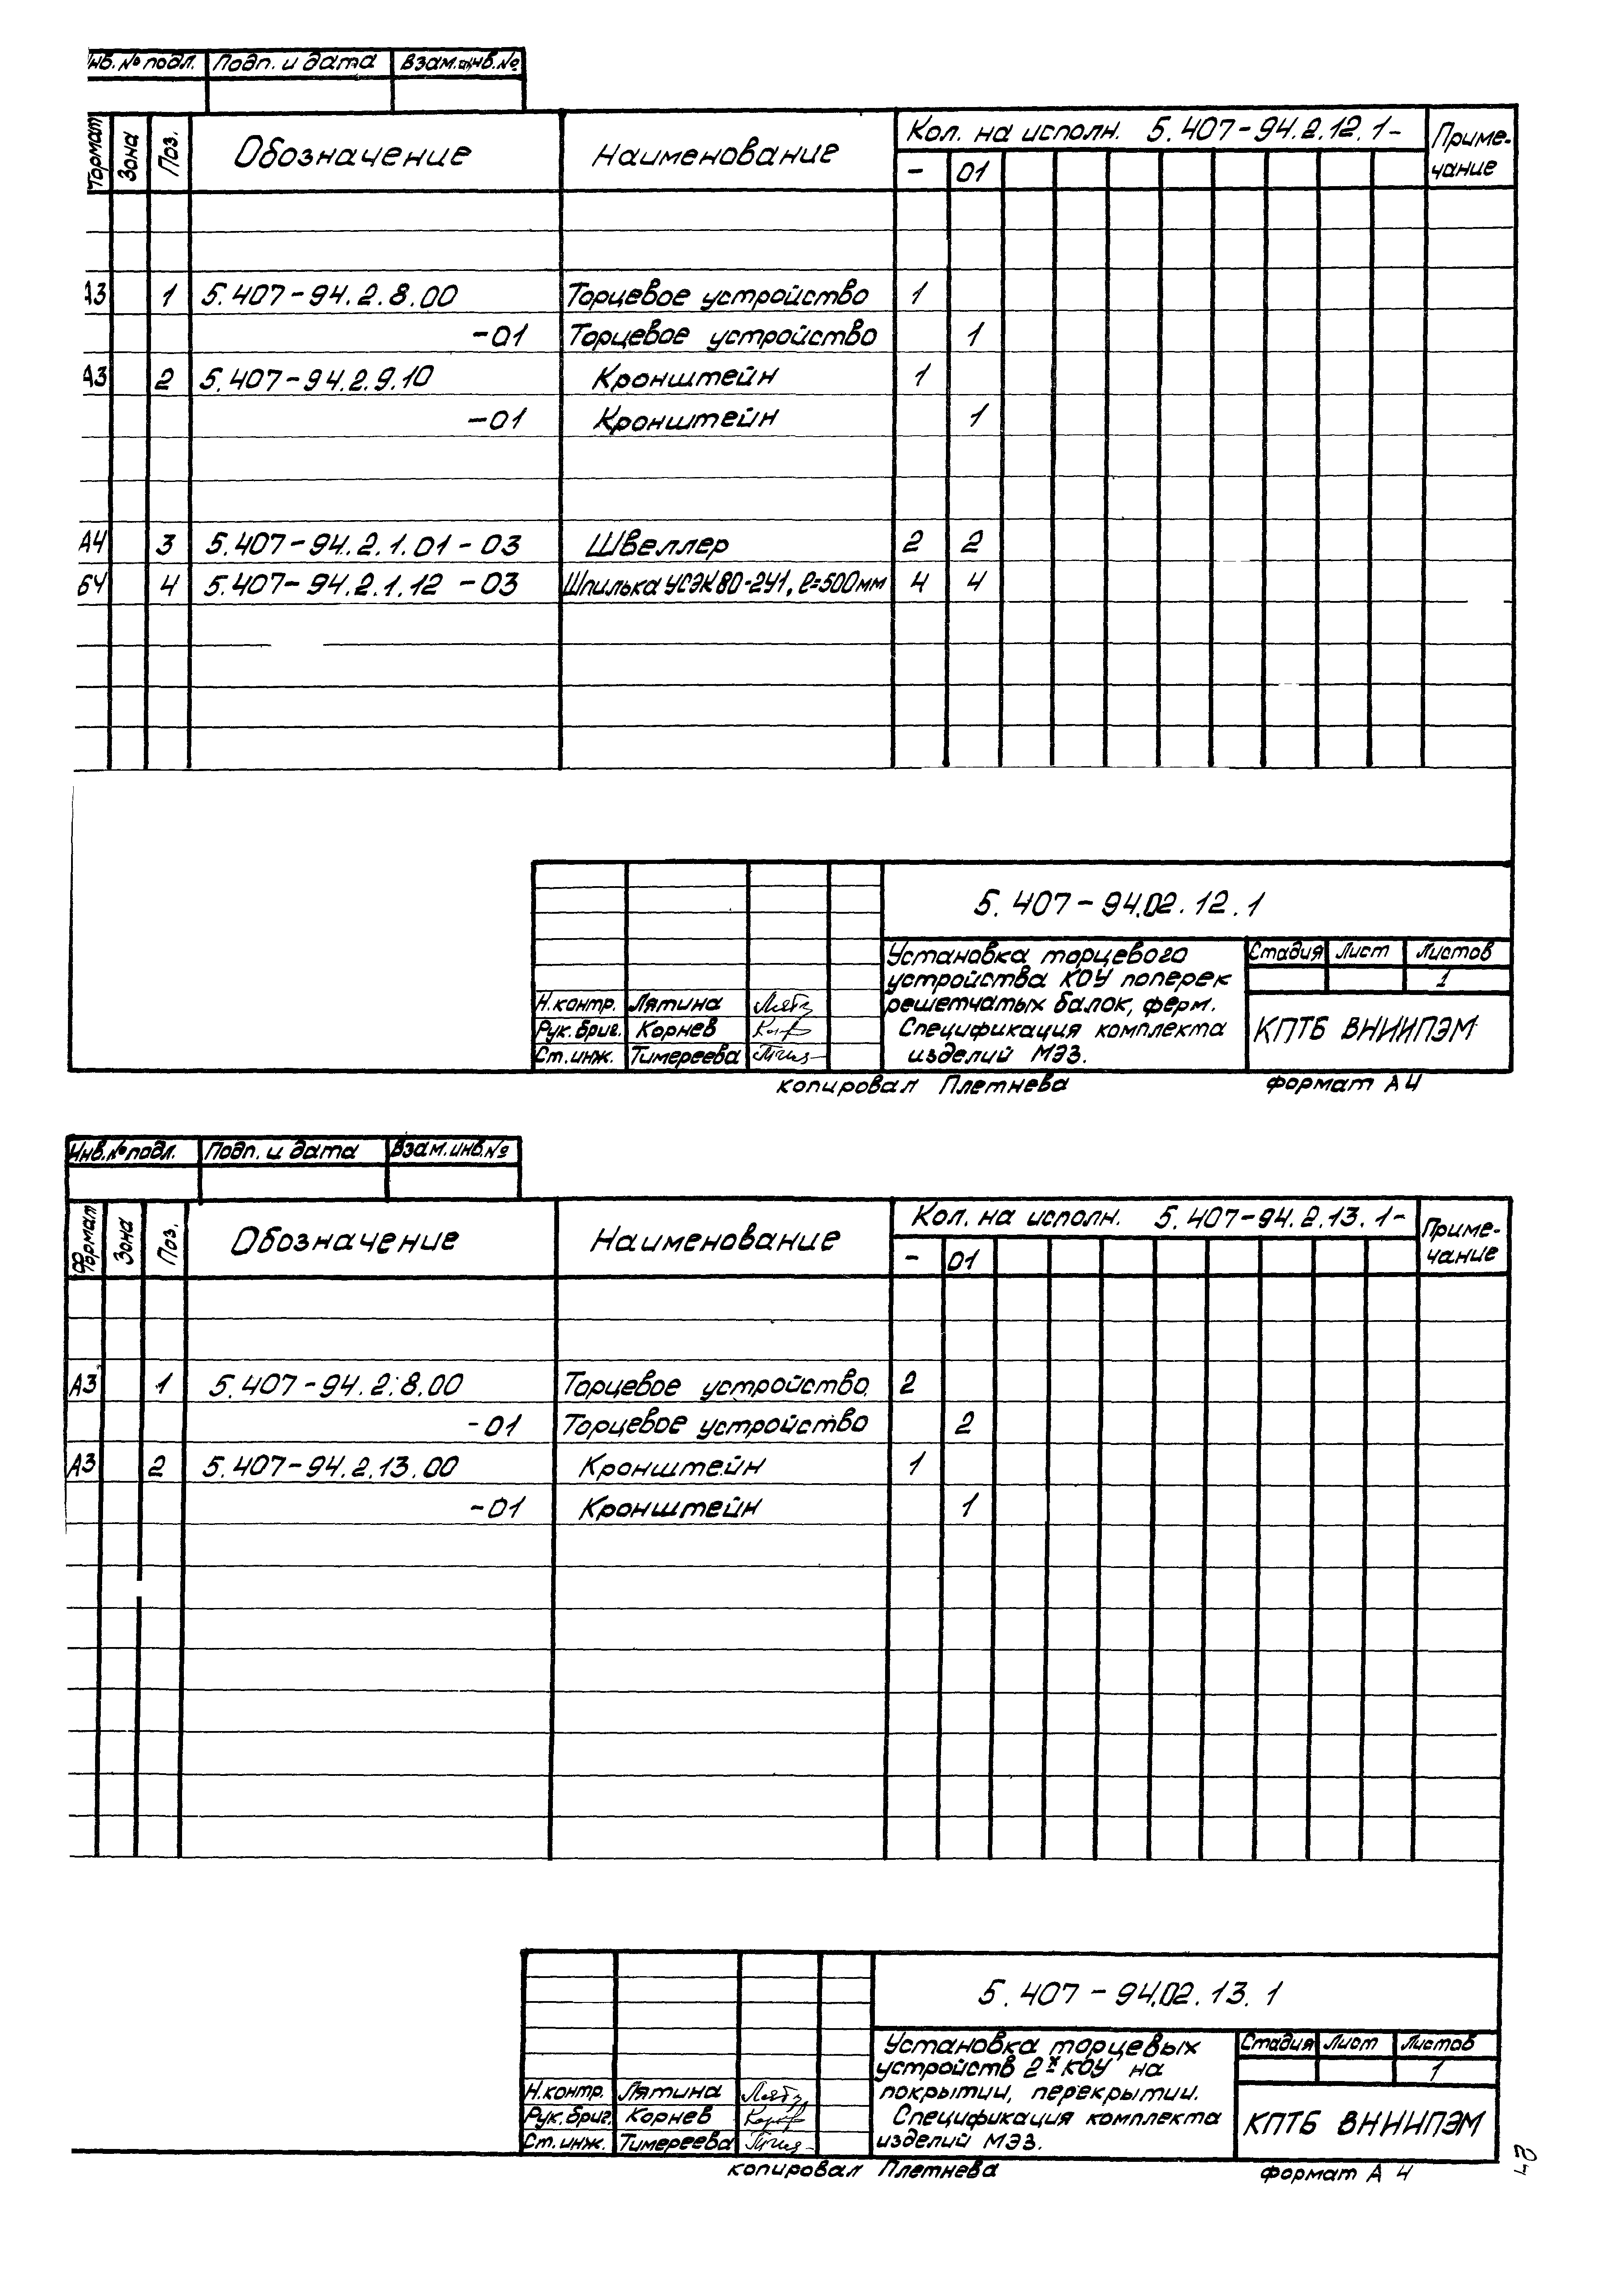 Инв. № подл. Подп. и дата Взам. инв. №
Формат Зона Поз. Обозначение Наименование Кол. на исполн. 5.407-94.2.12.1- Приме-
чание
- 01
А3 1 5.407-94.2.8.00 Торцевое устройство 1
-01 Торцевое устройство 1
А3 2 5.407-94.2.9.10 Кронштейн 1
-01 Кронштейн 1
А4 3 5.407-94.2.1.01-03 Швеллер 2 2
БЧ 4 5.407-94.2.1.12-03 Шпилька УСЭК80-2У1, ℓ=500мм 4 4
5.407-94.02.12.1
Установка торцевого
устройства КОУ поперек
решетчатых балок, ферм.
Спецификация комплекта
изделий МЭЗ.
Стадия Лист Листов
1
КПТБ ВНИИПЭМ
Н.контр. Лятина
Рук. бриг. Корнев
Ст. инж. Тимереева
копировал Плетнева формат А4
Инв. № подл. Подп. и дата Взам. инв. №
Формат Зона Поз. Обозначение Наименование Кол. на исполн. 5.407-94.2.13.1- Приме-
чание
- 01
А3 1 5.407-94.2.8.00 Торцевое устройство 2
-01 Торцевое устройство 2
А3 2 5.407-94.2.13.00 Кронштейн 1
-01 Кронштейн 1
5.407-94.02.13.1
Установка торцевых
устройств 2х КОУ на
покрытии, перекрытии.
Спецификация комплекта
изделий МЭЗ.
Стадия Лист Листов
1
КПТБ ВНИИПЭМ
Н.контр. Лятина
Рук. бриг. Корнев
Ст. инж. Тимереева
копировал Плетнева формат А4